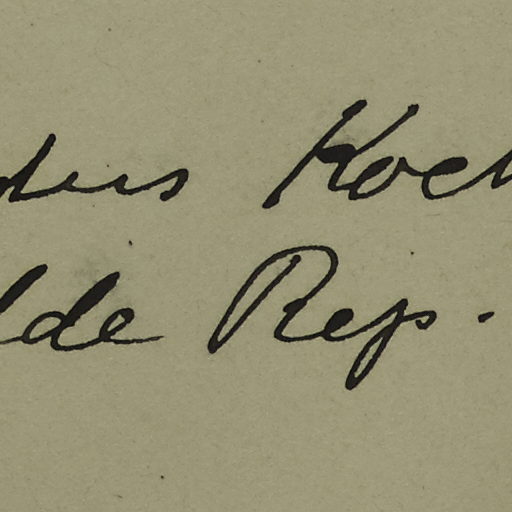 ders Koch
lde Rep.